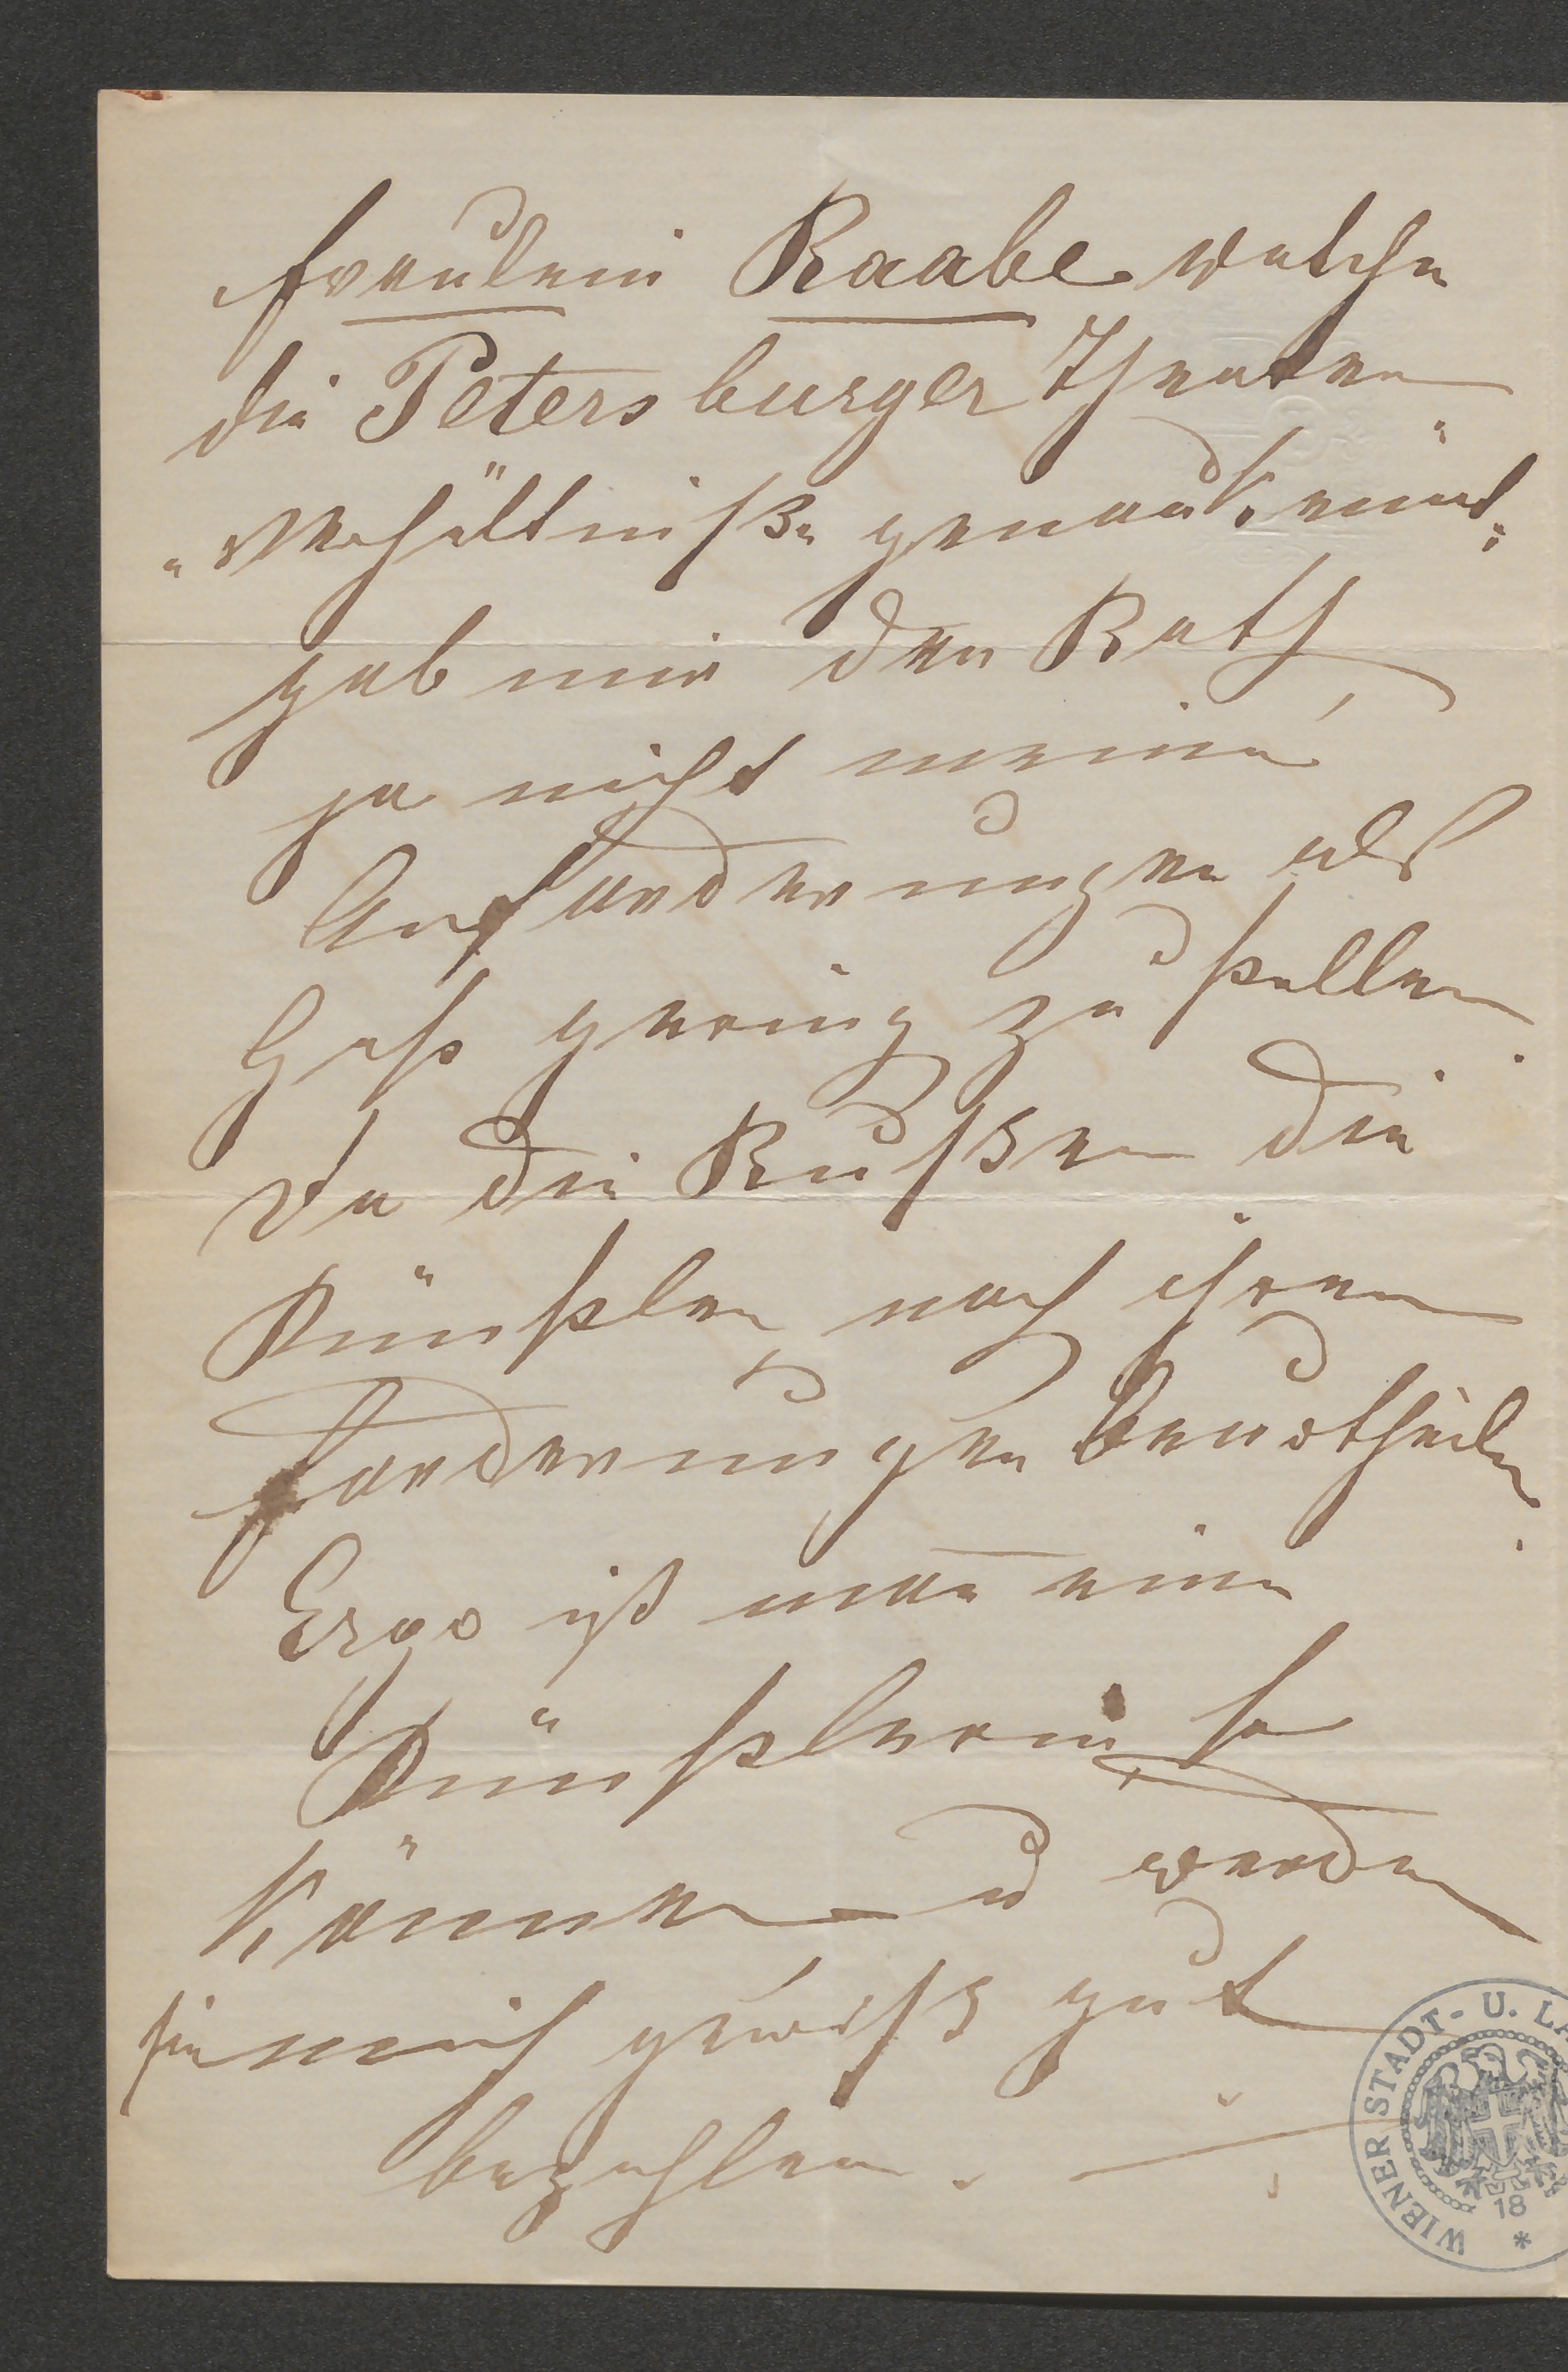 Fräulein Raabe welche
die Petersburger Theater
"Verhältniße genau kennt"
gab mir den Rath
ja nicht meine
Anforderungen als
Gast gering zu stellen
da die Rußen die
Künstler nach ihren
Forderungen beurtheilen
Ergo ist man eine
Künstlerin so
können u werden
sie mich gewiß gut
bezahlen. —
WIENER STADT- U. LA
18